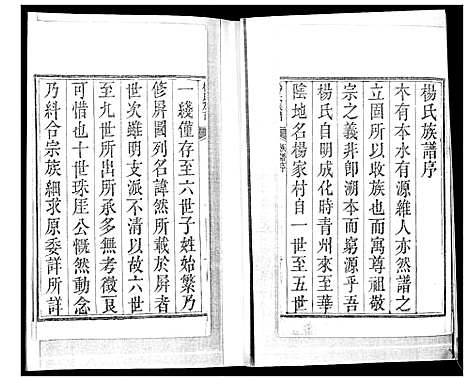 楊氏族譜序
木有本水有源維人亦然譜之
立固所以收族也而寓尊祖敬
宗之義非卽溯本而窮源乎吾
楊氏自明成化時青州來至華
陰地名楊家村自一世至五世
一綫僅存至六世子姓始繁乃
修屏圖列名諱然所載於屏者
世次雖明支派不清以故六世
至九世所出所承多無考徵良
可惜也十世珠厓公慨然動念
乃糾合宗族網求原委詳所詳